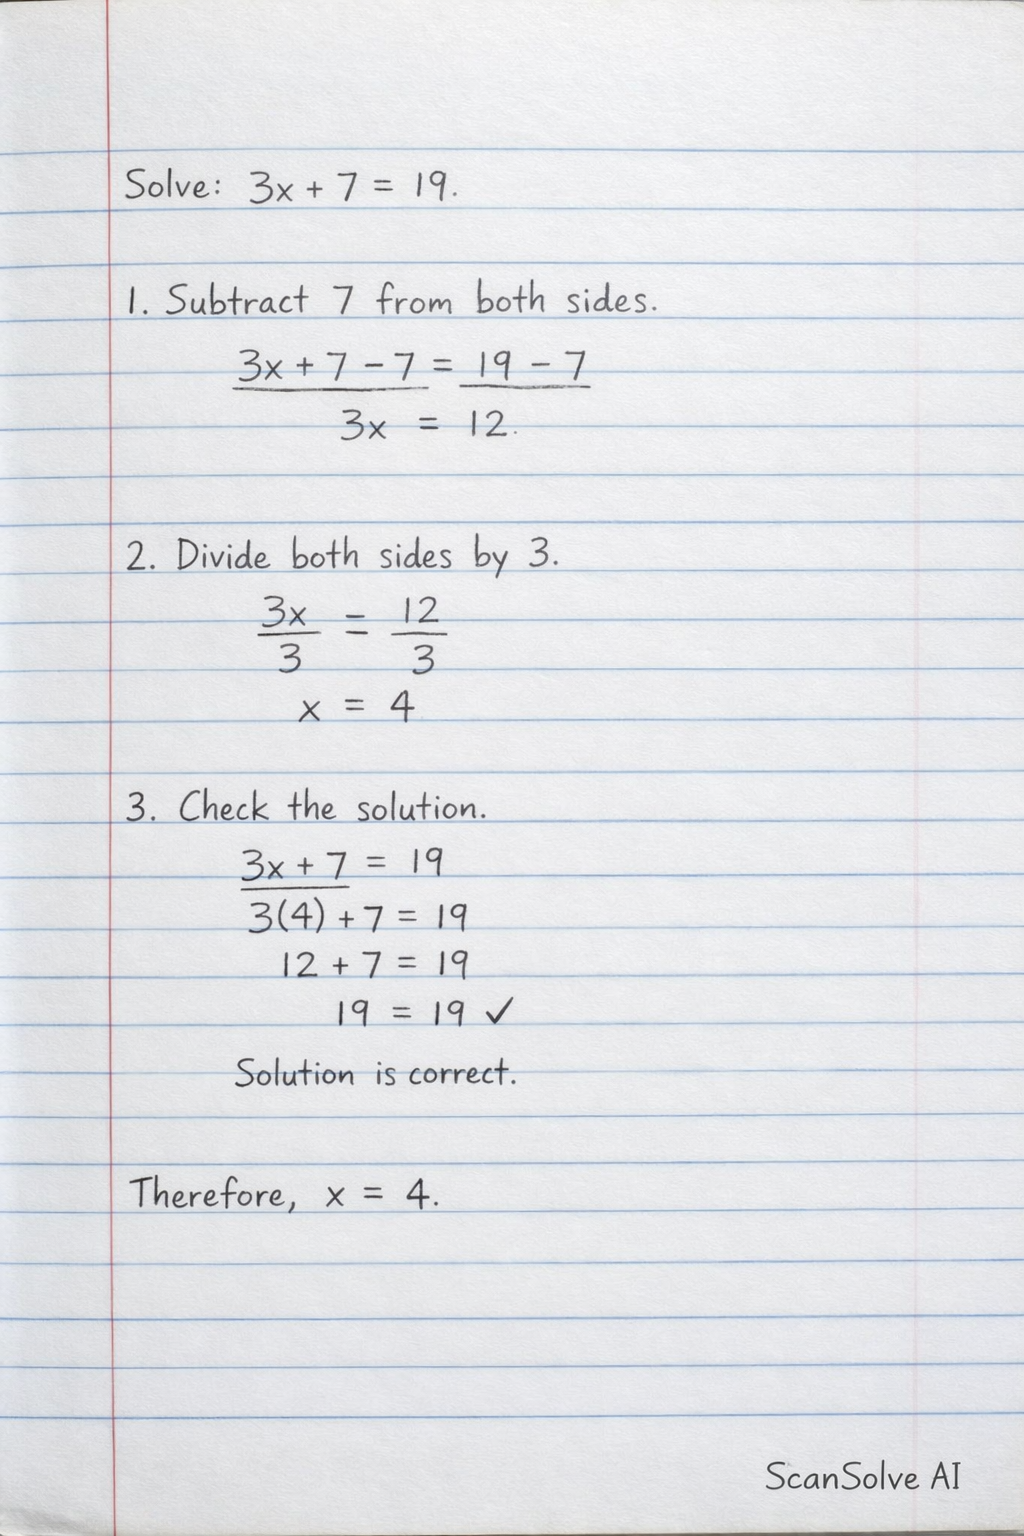 Solve: 3x + 7 = 19.
1. Subtract 7 from both sides.
3x + 7 - 7 = 19 - 7
3x = 12.
2. Divide both sides by 3.
3x/3 = 12/3
x = 4
3. Check the solution.
3x + 7 = 19
3(4) + 7 = 19
12 + 7 = 19
19 = 19 ✓
Solution is correct.
Therefore, x = 4.
ScanSolve AI